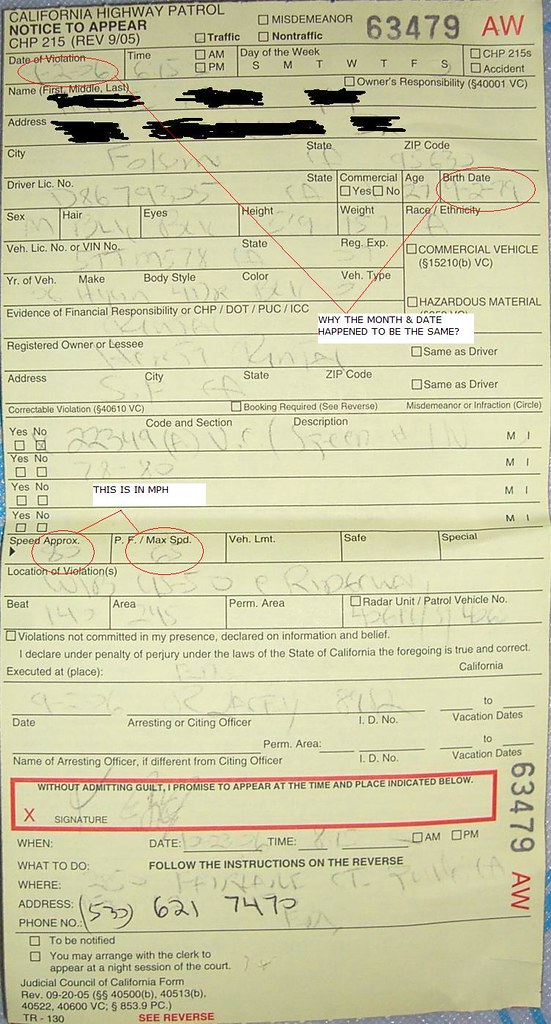 CALIFORNIA HIGHWAY PATROL
NOTICE TO APPEAR
CHP 215 (REV 9/05)
MISDEMEANOR
Traffic Nontraffic
63479 AW
Date of Violation Time AM PM Day of the Week S M T W T F S CHP 215s Accident
6:15
Owner's Responsibility (§40001 VC)
Name (First, Middle, Last)
Address
City State ZIP Code
Folsom CA 95630
Driver Lic. No. State Commercial Yes No Age Birth Date
D8679305 CA 27 9-2-79
Sex Hair Eyes Height Weight Race / Ethnicity
M BLK BLK 5/9 157 A
Veh. Lic. No. or VIN No. State Reg. Exp.
COMMERCIAL VEHICLE
(§15210(b) VC)
CA
Yr. of Veh. Make Body Style Color Veh. Type
HAZARDOUS MATERIAL
Evidence of Financial Responsibility or CHP / DOT / PUC / ICC
WHY THE MONTH & DATE
HAPPENED TO BE THE SAME?
Registered Owner or Lessee
Same as Driver
Address City State ZIP Code
Same as Driver
S.F. CA
Correctable Violation (§40610 VC) Booking Required (See Reverse) Misdemeanor or Infraction (Circle)
Code and Section Description
Yes No 22349(A) V.C. M I
Yes No M I
Yes No M I
THIS IS IN MPH
Yes No M I
Speed Approx. P. F. / Max Spd. Veh. Lmt. Safe Special
80 65
Location of Violation(s)
Beat Area Perm. Area Radar Unit / Patrol Vehicle No.
140 245
Violations not committed in my presence, declared on information and belief.
I declare under penalty of perjury under the laws of the State of California the foregoing is true and correct.
Executed at (place): California
9-2-06
to
Date Arresting or Citing Officer I. D. No. Vacation Dates
Perm. Area: to
Name of Arresting Officer, if different from Citing Officer I. D. No. Vacation Dates
WITHOUT ADMITTING GUILT, I PROMISE TO APPEAR AT THE TIME AND PLACE INDICATED BELOW.
X SIGNATURE
63479 AW
WHEN: DATE: TIME: AM PM
WHAT TO DO: FOLLOW THE INSTRUCTIONS ON THE REVERSE
WHERE:
ADDRESS:
PHONE NO.: (530) 621 7470
To be notified
You may arrange with the clerk to
appear at a night session of the court.
Judicial Council of California Form
Rev. 09-20-05 (§§ 40500(b), 40513(b),
40522, 40600 VC; § 853.9 PC.)
TR - 130 SEE REVERSE